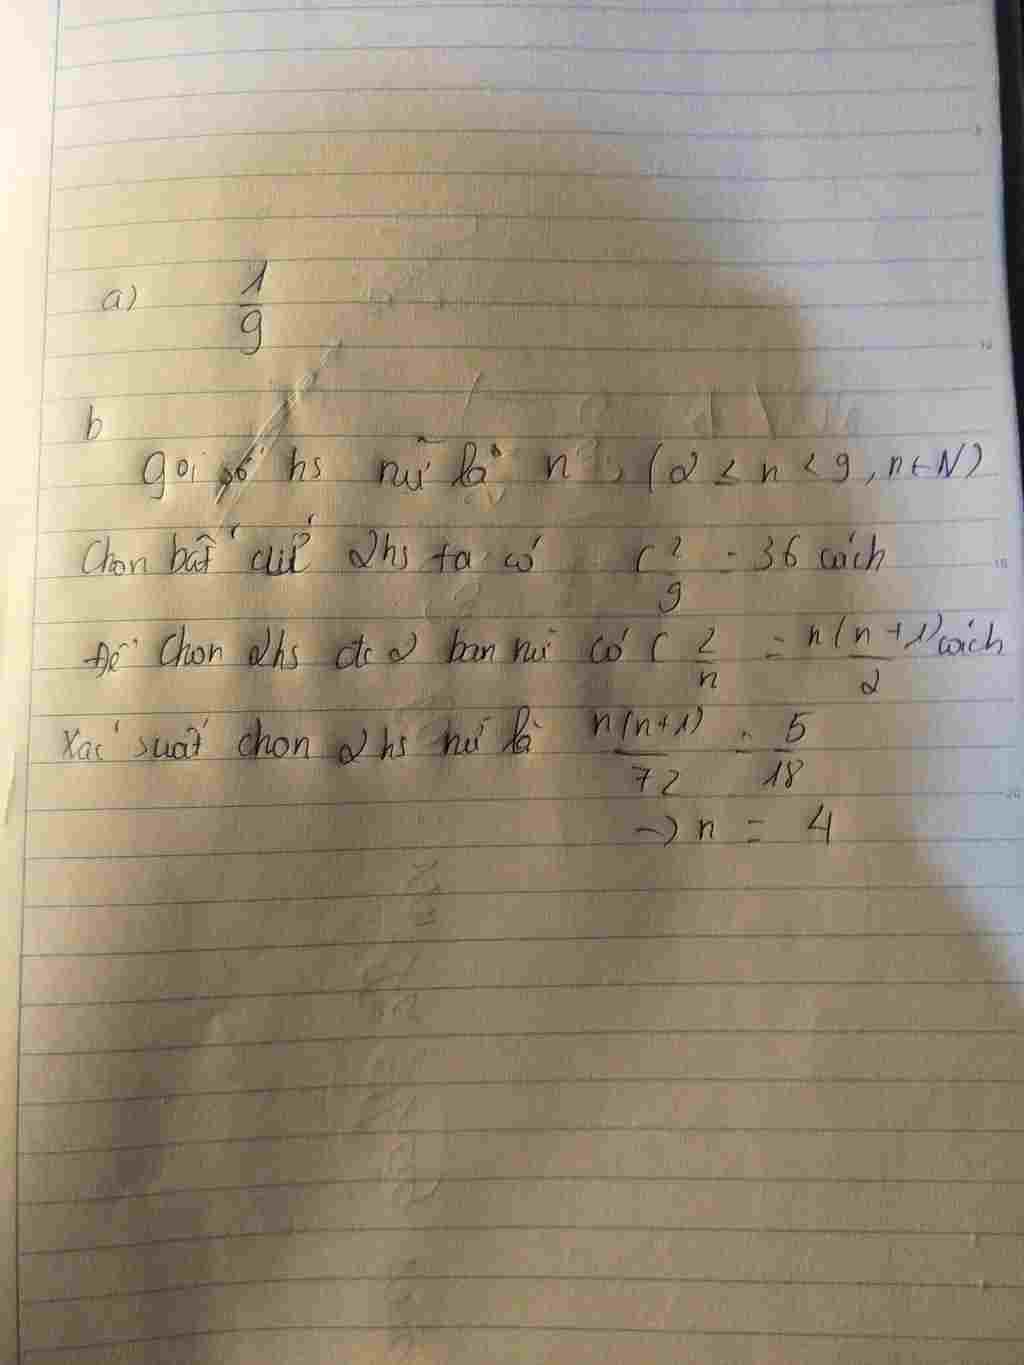 a) 1/9
b
gọi số hs nữ là n, (2 ≤ n < 9, n ∈ N)
Chọn bất cứ 2hs ta có C²₉ = 36 cách
Để chọn 2hs đc 2 bạn nữ có C²ₙ = n(n+1)/2 cách
Xác suất chọn 2hs nữ là n(n+1)/72 = 5/18
→ n = 4